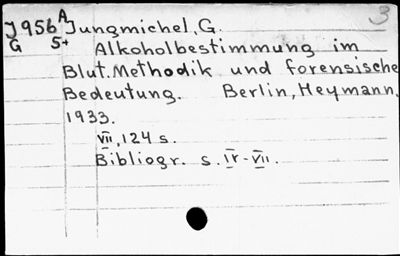 J956 A Jungmichel, G. 3
G 5+ Alkoholbestimmung im
Blut. Methodik und forensische
Bedeutung. Berlin, Heymann,
1933.
VII, 124 s.
Bibliogr. s. IV-VII.